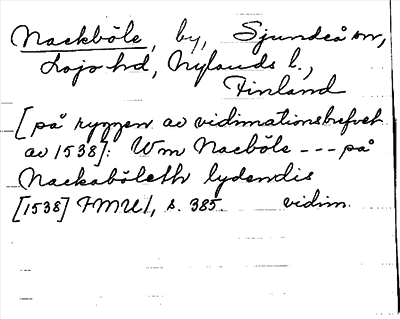 Nackböle, by, Sjundeå sn,
Lojo hd, Nylands l.,
Finland
[på ryggen av vidimationsbrefvet
av 1538]: Wm Nacböle --- på
Nackaböleth lydendis
[1538] FMU1, s. 385. vidim.